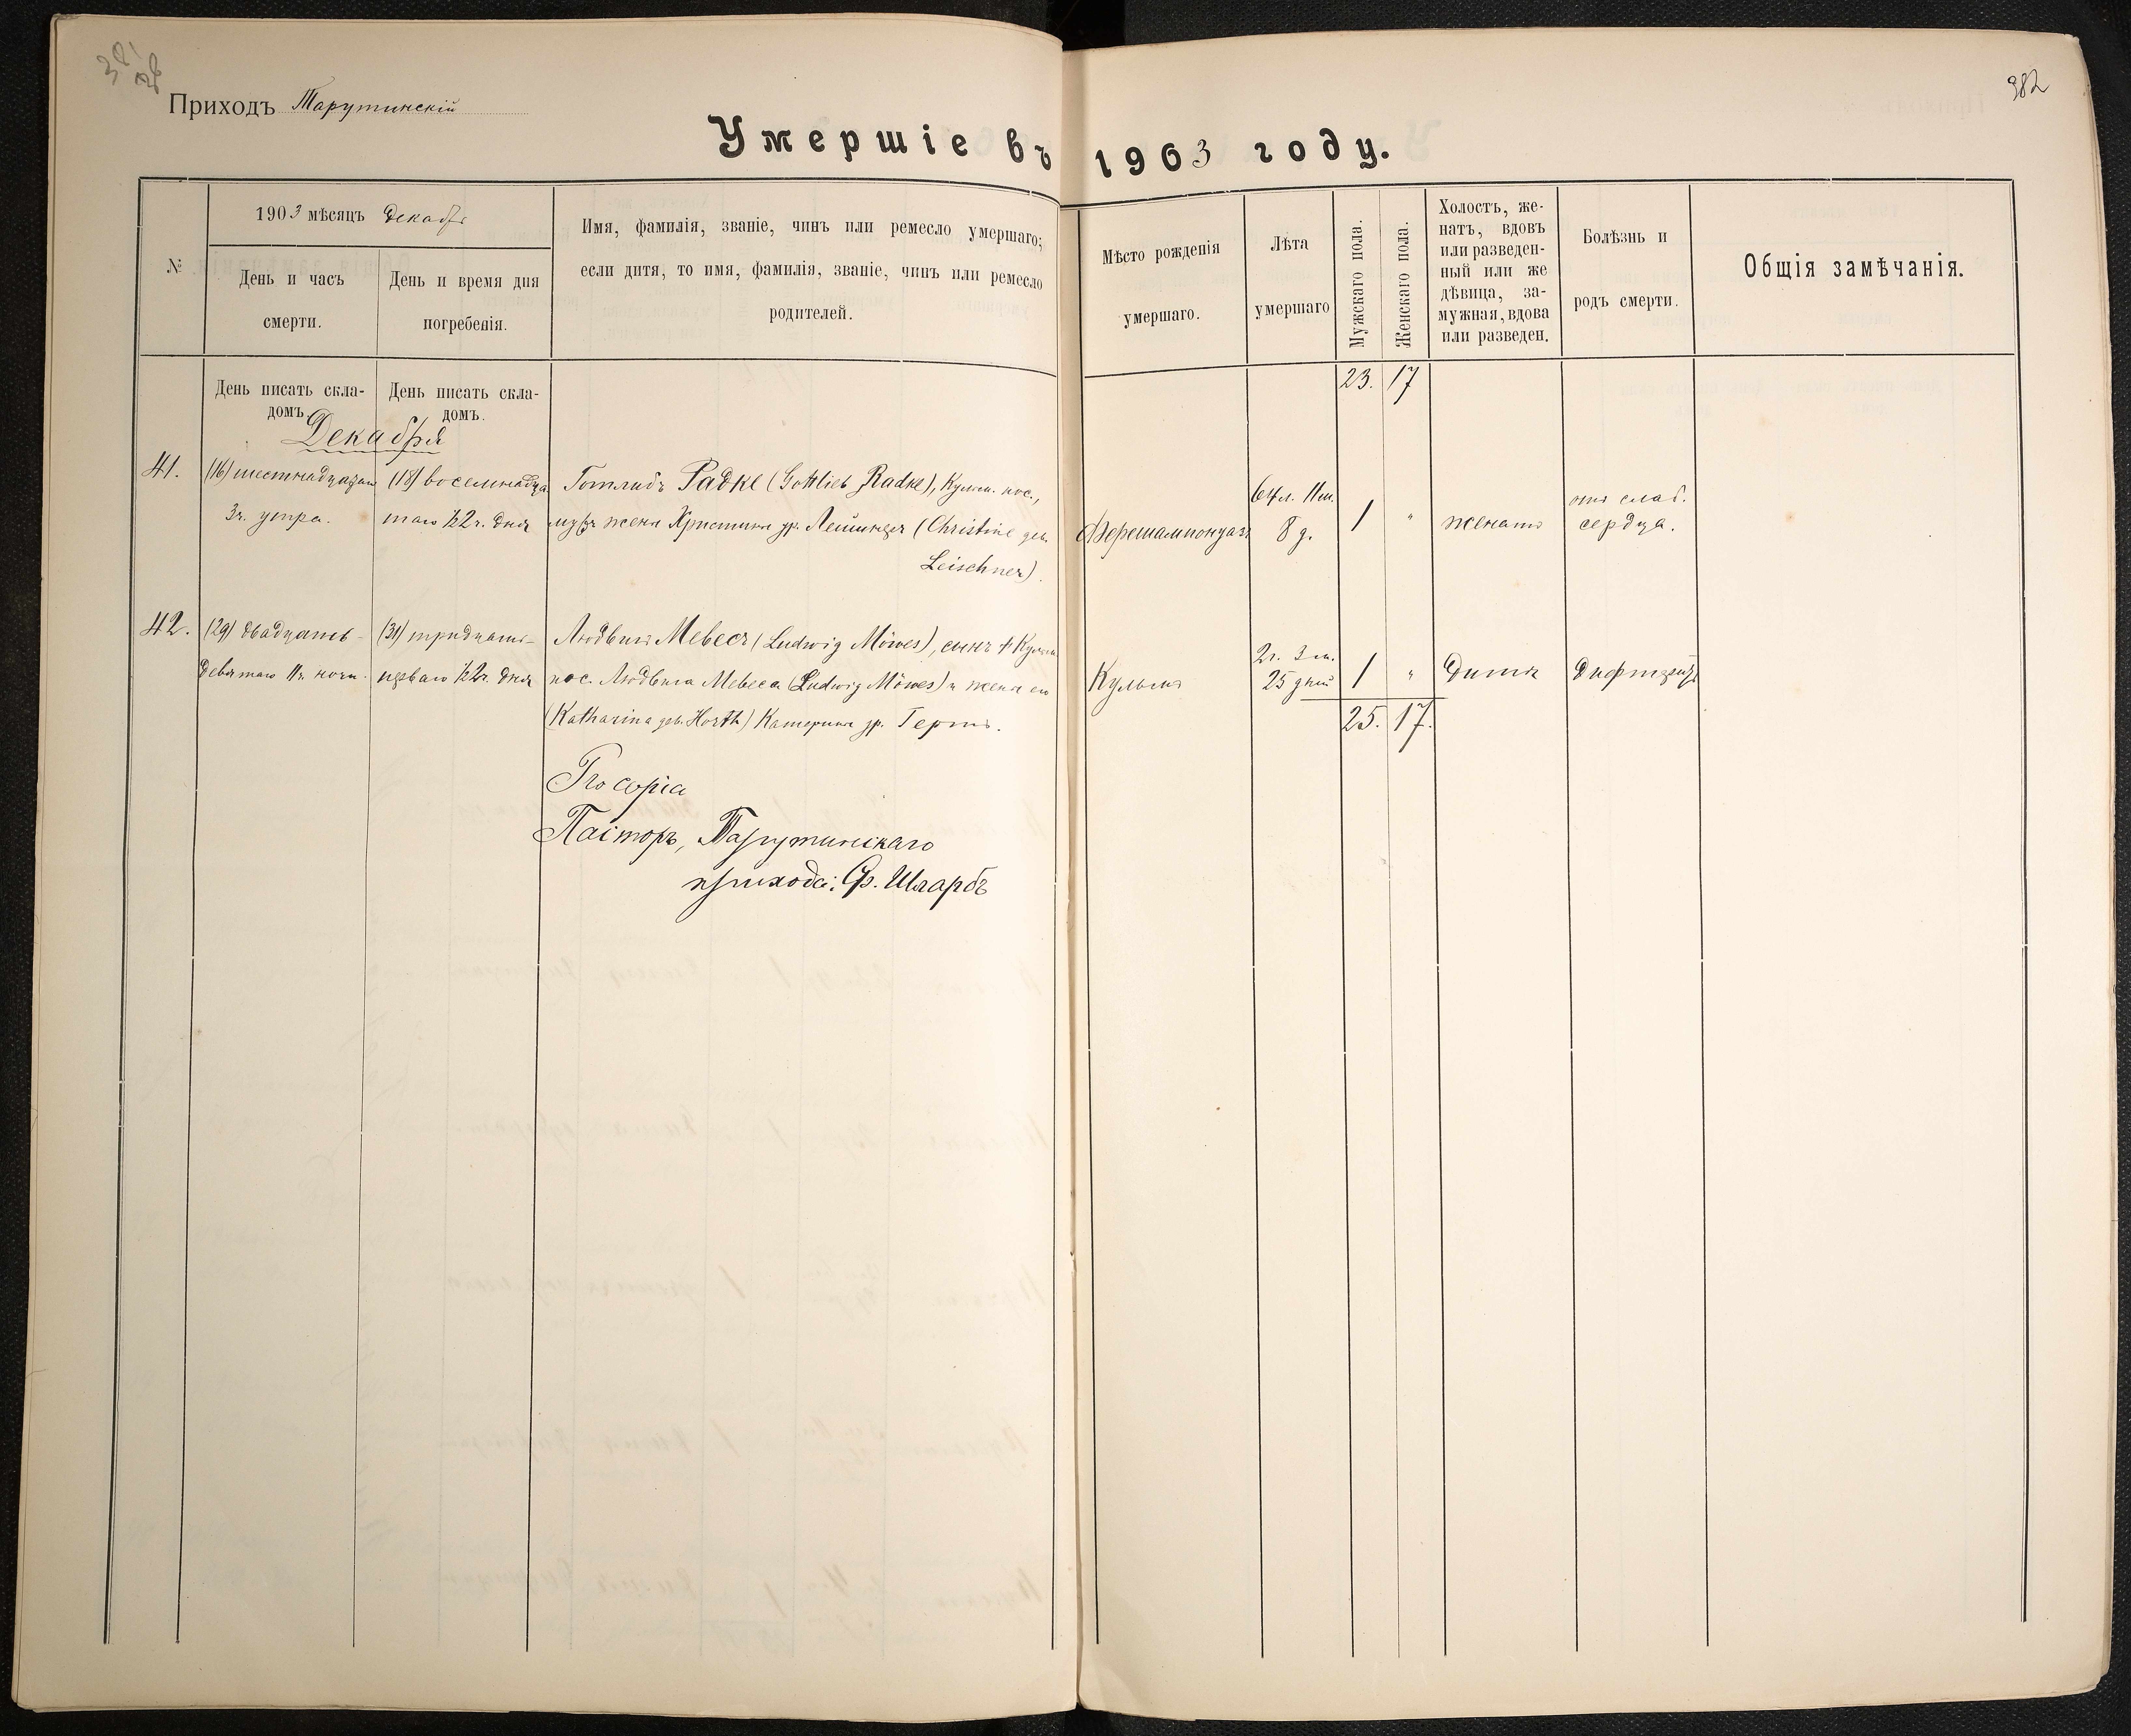 Приходъ Тарутинскій
382
Умершіе въ 1903 году.
№
1903 мѣсяцъ Декабрь
День и часъ
смерти.
День и время дня
погребенія.
Имя, фамилія, званіе, чинъ или ремесло умершаго;
если дитя, то имя, фамилія, званіе, чинъ или ремесло
родителей.
Мѣсто рожденія
умершаго.
Лѣта
умершаго
Мужскаго пола.
Женскаго пола.
Холостъ, же-
натъ, вдовъ
или разведен-
ный или же
дѣвица, за-
мужная, вдова
или разведен.
Болѣзнь и
родъ смерти.
Общія замѣчанія.
День писать скла-
домъ.
День писать скла-
домъ.
23. 17
Декабря
41.
(16) шестнадцатаго
3 ч. утра.
(18) восемнадца
таго ½2 ч. дня
Готлибъ Радке (Gottlieb Radke), Кульм. пос.,
мужъ жены Христины ур. Лейшнеръ (Christine geb.
Leischner).
Ферешампонуазъ
64 л. 11 м.
8 д.
1 "
женатъ
отъ слаб.
сердца.
42.
(29) двадцать-
девятаго 11 ч. ночи.
(31) тридцать-
перваго ½2 ч. дня
Людвигъ Мевесъ (Ludwig Möwes), сынъ + Кульм.
пос. Людвига Мевеса (Ludwig Möwes) и жены его
(Katharina geb. Horth) Катерины ур. Гертъ.
Кульмъ
2 г. 3 м.
25 дней
1 "
Дитя
Дифтеритъ
25. 17.
Пасторъ, Тарутинскаго
прихода: Ф.